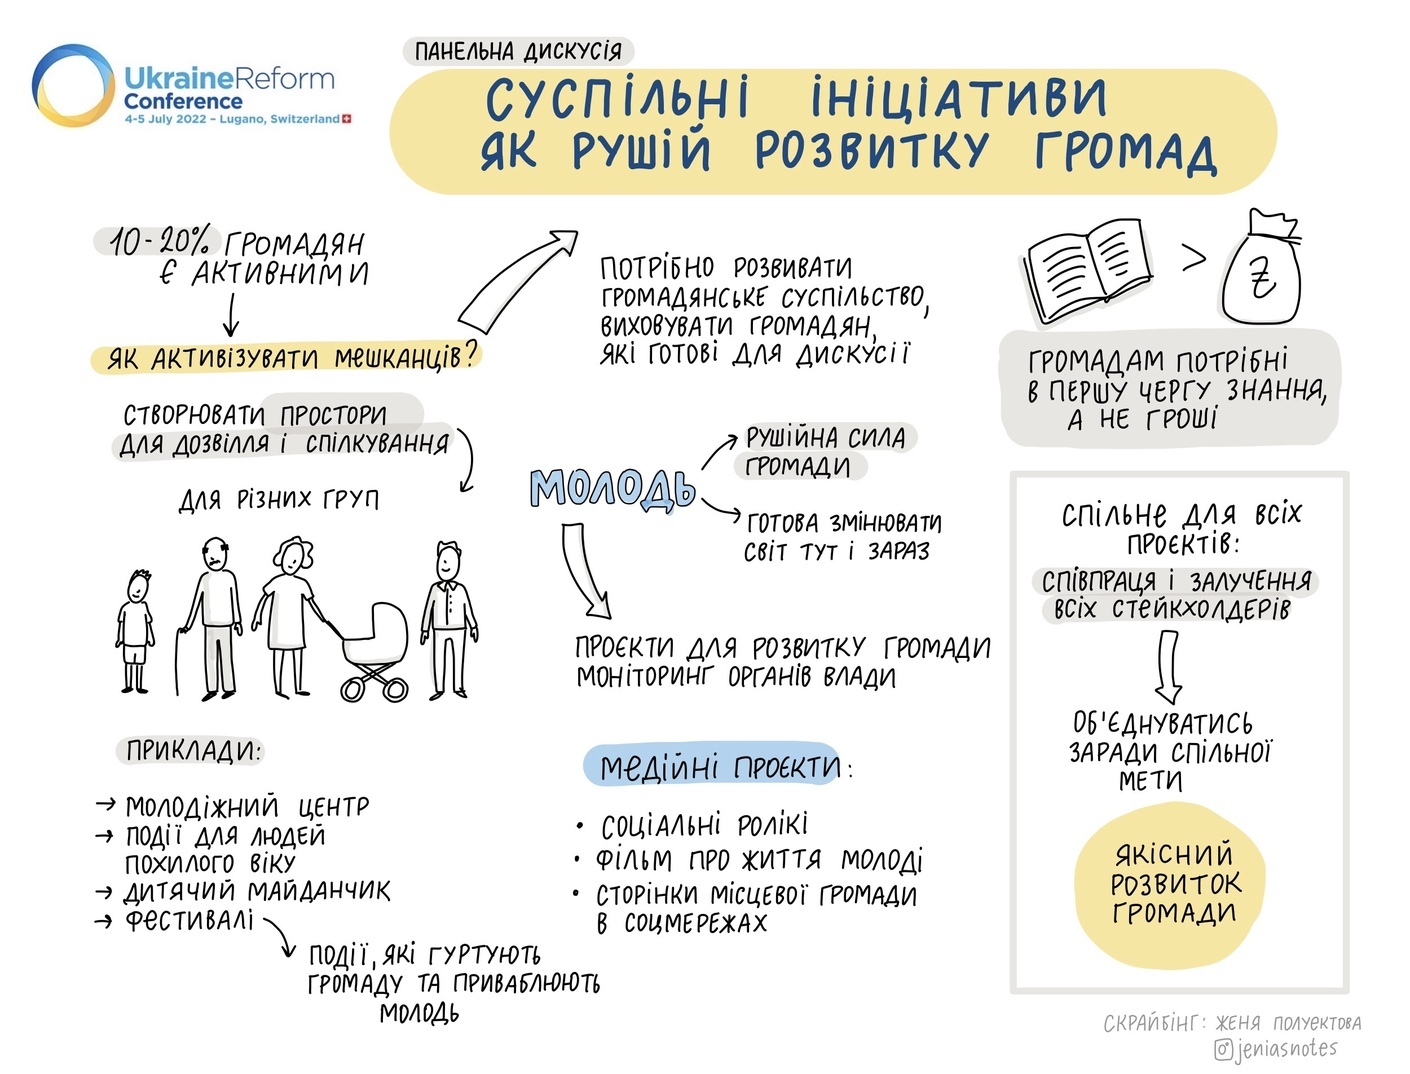 UkraineReform
Conference
4-5 July 2022 – Lugano, Switzerland
ПАНЕЛЬНА ДИСКУСІЯ
СУСПІЛЬНІ ІНІЦІАТИВИ
ЯК РУШІЙ РОЗВИТКУ ГРОМАД
10-20% ГРОМАДЯН
Є АКТИВНИМИ
ЯК АКТИВІЗУВАТИ МЕШКАНЦІВ?
СТВОРЮВАТИ ПРОСТОРИ
ДЛЯ ДОЗВІЛЛЯ І СПІЛКУВАННЯ
ДЛЯ РІЗНИХ ГРУП
ПРИКЛАДИ:
→ МОЛОДІЖНИЙ ЦЕНТР
→ ПОДІЇ ДЛЯ ЛЮДЕЙ
ПОХИЛОГО ВІКУ
→ ДИТЯЧИЙ МАЙДАНЧИК
→ ФЕСТИВАЛІ
ПОДІЇ, ЯКІ ГУРТУЮТЬ
ГРОМАДУ ТА ПРИВАБЛЮЮТЬ
МОЛОДЬ
ПОТРІБНО РОЗВИВАТИ
ГРОМАДЯНСЬКЕ СУСПІЛЬСТВО,
ВИХОВУВАТИ ГРОМАДЯН,
ЯКІ ГОТОВІ ДЛЯ ДИСКУСІЇ
МОЛОДЬ
РУШІЙНА СИЛА
ГРОМАДИ
ГОТОВА ЗМІНЮВАТИ
СВІТ ТУТ І ЗАРАЗ
ПРОЄКТИ ДЛЯ РОЗВИТКУ ГРОМАДИ
МОНІТОРИНГ ОРГАНІВ ВЛАДИ
МЕДІЙНІ ПРОЄКТИ:
• СОЦІАЛЬНІ РОЛІКІ
• ФІЛЬМ ПРО ЖИТТЯ МОЛОДІ
• СТОРІНКИ МІСЦЕВОЇ ГРОМАДИ
В СОЦМЕРЕЖАХ
> ₴
ГРОМАДАМ ПОТРІБНІ
В ПЕРШУ ЧЕРГУ ЗНАННЯ,
А НЕ ГРОШІ
СПІЛЬНЕ ДЛЯ ВСІХ
ПРОЄКТІВ:
СПІВПРАЦЯ І ЗАЛУЧЕННЯ
ВСІХ СТЕЙКХОЛДЕРІВ
ОБ'ЄДНУВАТИСЬ
ЗАРАДИ СПІЛЬНОЇ
МЕТИ
ЯКІСНИЙ
РОЗВИТОК
ГРОМАДИ
СКРАЙБІНГ: ЖЕНЯ ПОЛУЕКТОВА
jeniasnotes